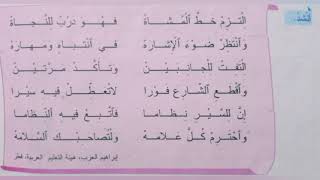 أنشد
اِلْتَزِمْ خَطَّ الْمُشَاةْ فَهُوَ دَرْبٌ لِلنَّجَاةْ
وَانْتَظِرْ ضَوْءَ الْإِشَارَهْ فِي انْتِبَاهٍ وَمَهَارَهْ
اِلْتَفِتْ لِلْجَانِبَيْنِ وَتَأَكَّدْ مَرَّتَيْنِ
وَاقْطَعِ الشَّارِعَ فَوْرًا لَا تُعَطِّلْ فِيهِ سَيْرًا
إِنَّ لِلسَّيْرِ نِظَامَا فَاتَّبِعْ فِيهِ النِّظَامَا
وَاحْتَرِمْ كُلَّ عَلَامَهْ وَلْتُصَاحِبْكَ السَّلَامَهْ
إبراهيم العرب، هيئة التعليم العربية، قطر